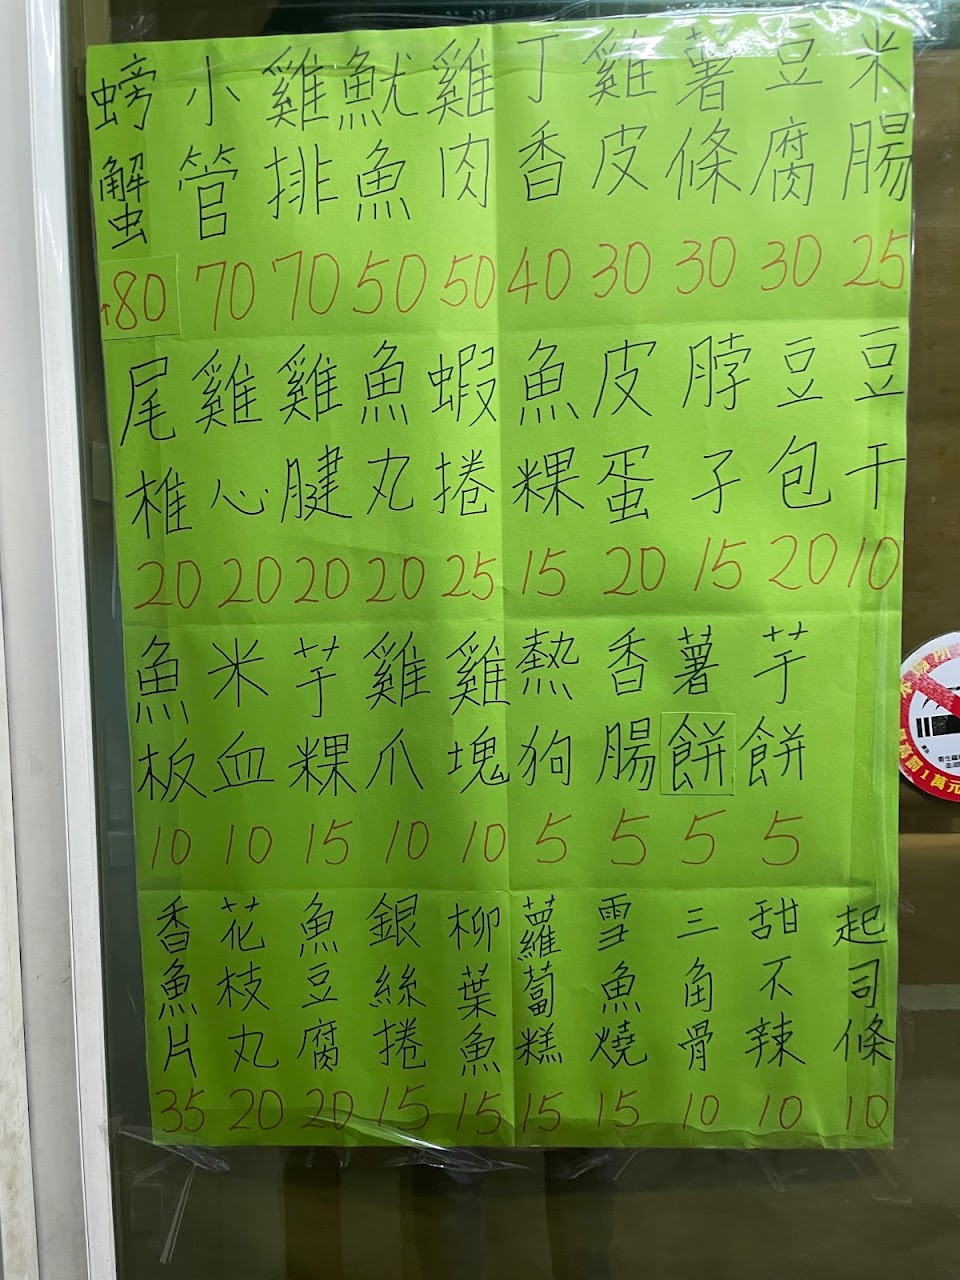 米腸 25
豆腐 30
薯條 30
雞皮 30
丁香 40
雞肉 50
魷魚 50
雞排 70
小管 70
螃蟹 ↑80
豆干 10
豆包 20
脖子 15
皮蛋 20
魚粿 15
蝦捲 25
魚丸 20
雞腱 20
雞心 20
尾椎 20
芋餅 5
薯餅 5
香腸 5
熱狗 5
雞塊 10
雞爪 10
芋粿 15
米血 10
魚板 10
起司條 10
甜不辣 10
三角骨 10
雪魚燒 15
蘿蔔糕 15
柳葉魚 15
銀絲捲 15
魚豆腐 20
花枝丸 20
香魚片 35